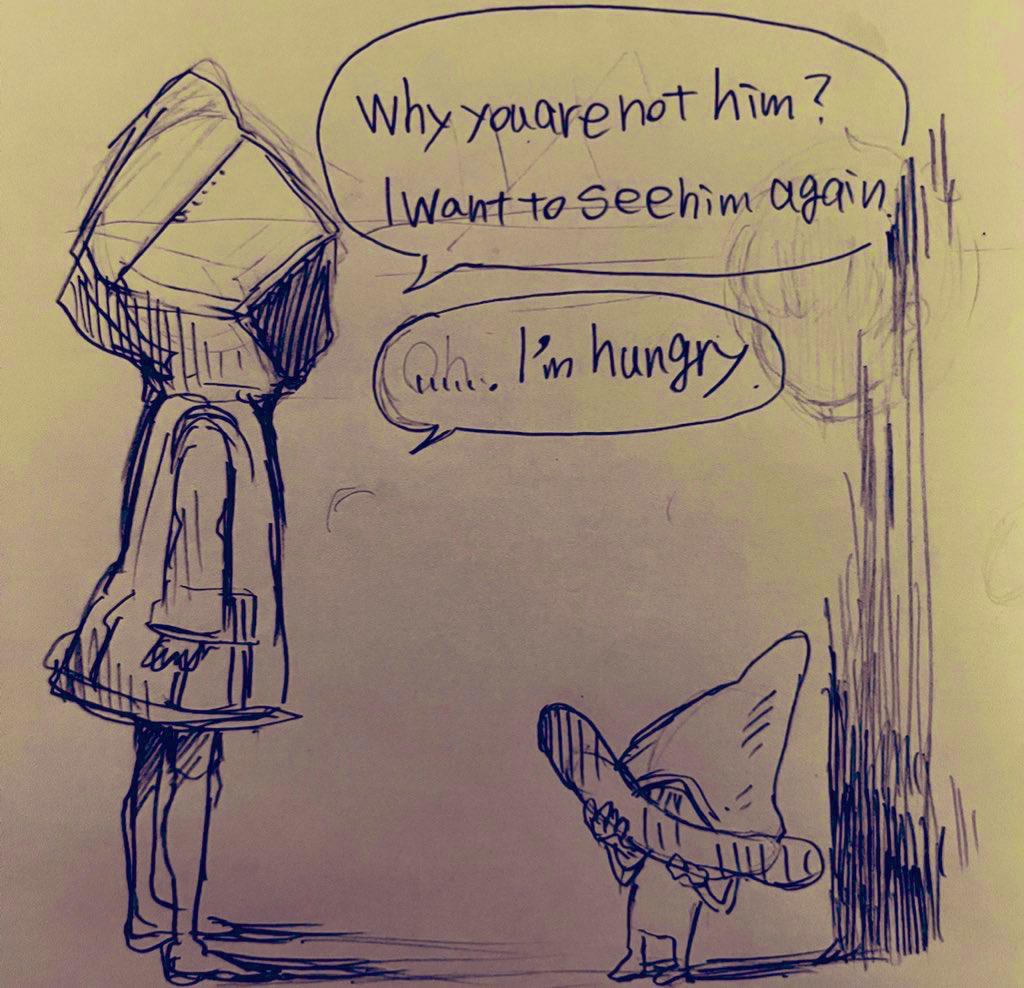 Why you are not him?
I want to see him again.
I'm hungry.